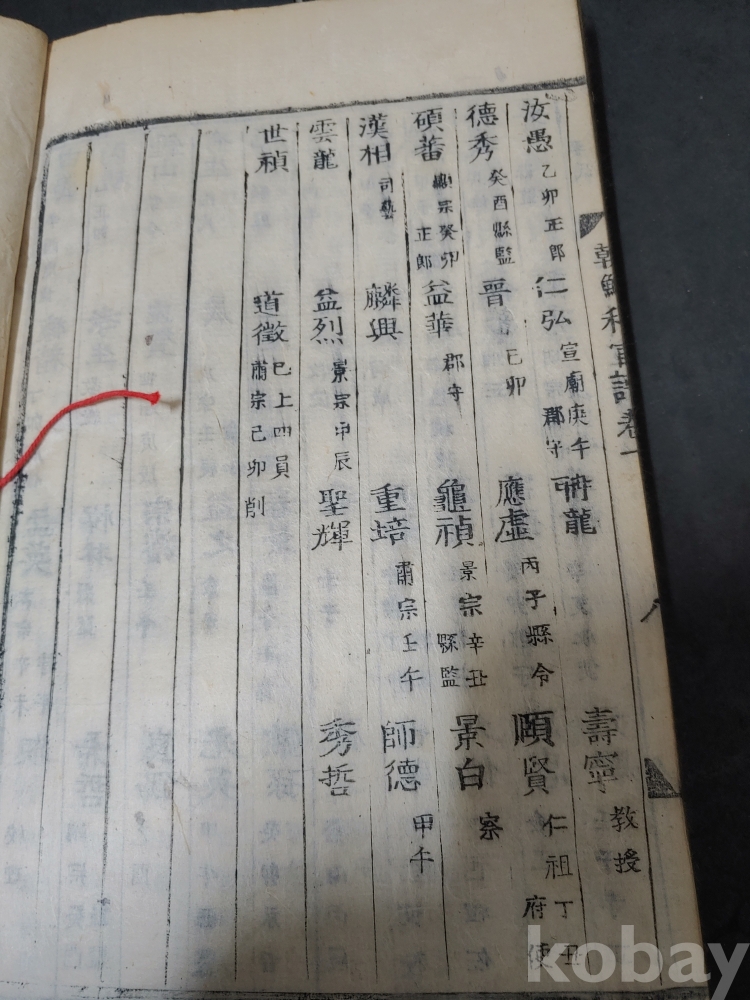 朝鮮科宦譜卷一 八
汝愚 乙卯正郎 仁弘 宣廟庚午 郡守 龍 壽寧 教授
德秀 癸酉縣監 晋 己卯 應虛 丙子縣令 頤賢 仁祖丁丑 府使
碩蕃 顯宗癸卯 正郎 益華 郡守 龜禎 景宗辛丑 縣監 景白 察
漢相 司藝 麟興 重培 肅宗壬午 師德 甲午
雲龍 益烈 景宗甲辰 聖輝 秀哲
世禎 道徵 已上四員 肅宗己卯削
kobay